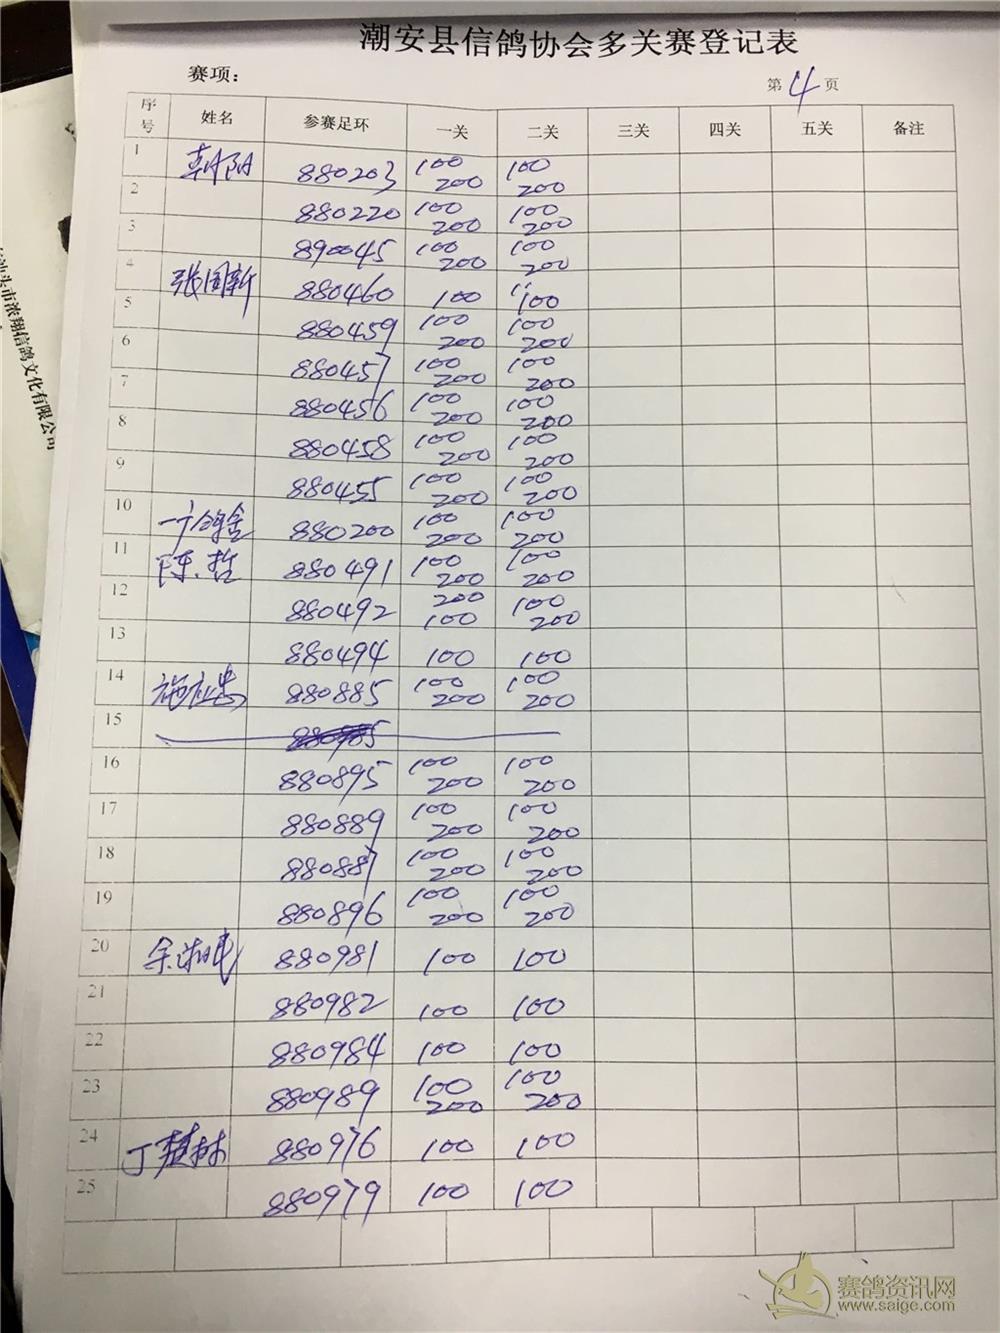 潮安县信鸽协会多关赛登记表
赛项： 第4页
序号 姓名 参赛足环 一关 二关 三关 四关 五关 备注
1 朝阳 880203 100 200 100 200
2 880220 100 200 100 200
3 890045 100 200 100 200
4 张国新 880460 100 100
5 880459 100 200 100 200
6 880457 100 200 100 200
7 880456 100 200 100 200
8 880458 100 200 100 200
9 880455 100 200 100 200
10 鸽舍 880200 100 200 100 200
11 陈哲 880491 100 200 100 200
12 880492 200 100 100 200
13 880494 100 100
14 施应忠 880885 100 200 100 200
15
16 880895 100 200 100 200
17 880889 100 200 100 200
18 880887 100 200 100 200
19 880896 100 200 100 200
20 880981 100 100
21 880982 100 100
22 880984 100 100
23 880989 100 200 100 200
24 丁楚林 880976 100 100
25 880979 100 100
汕头市浓翔信鸽文化有限公司
赛鸽资讯网
www.saige.com